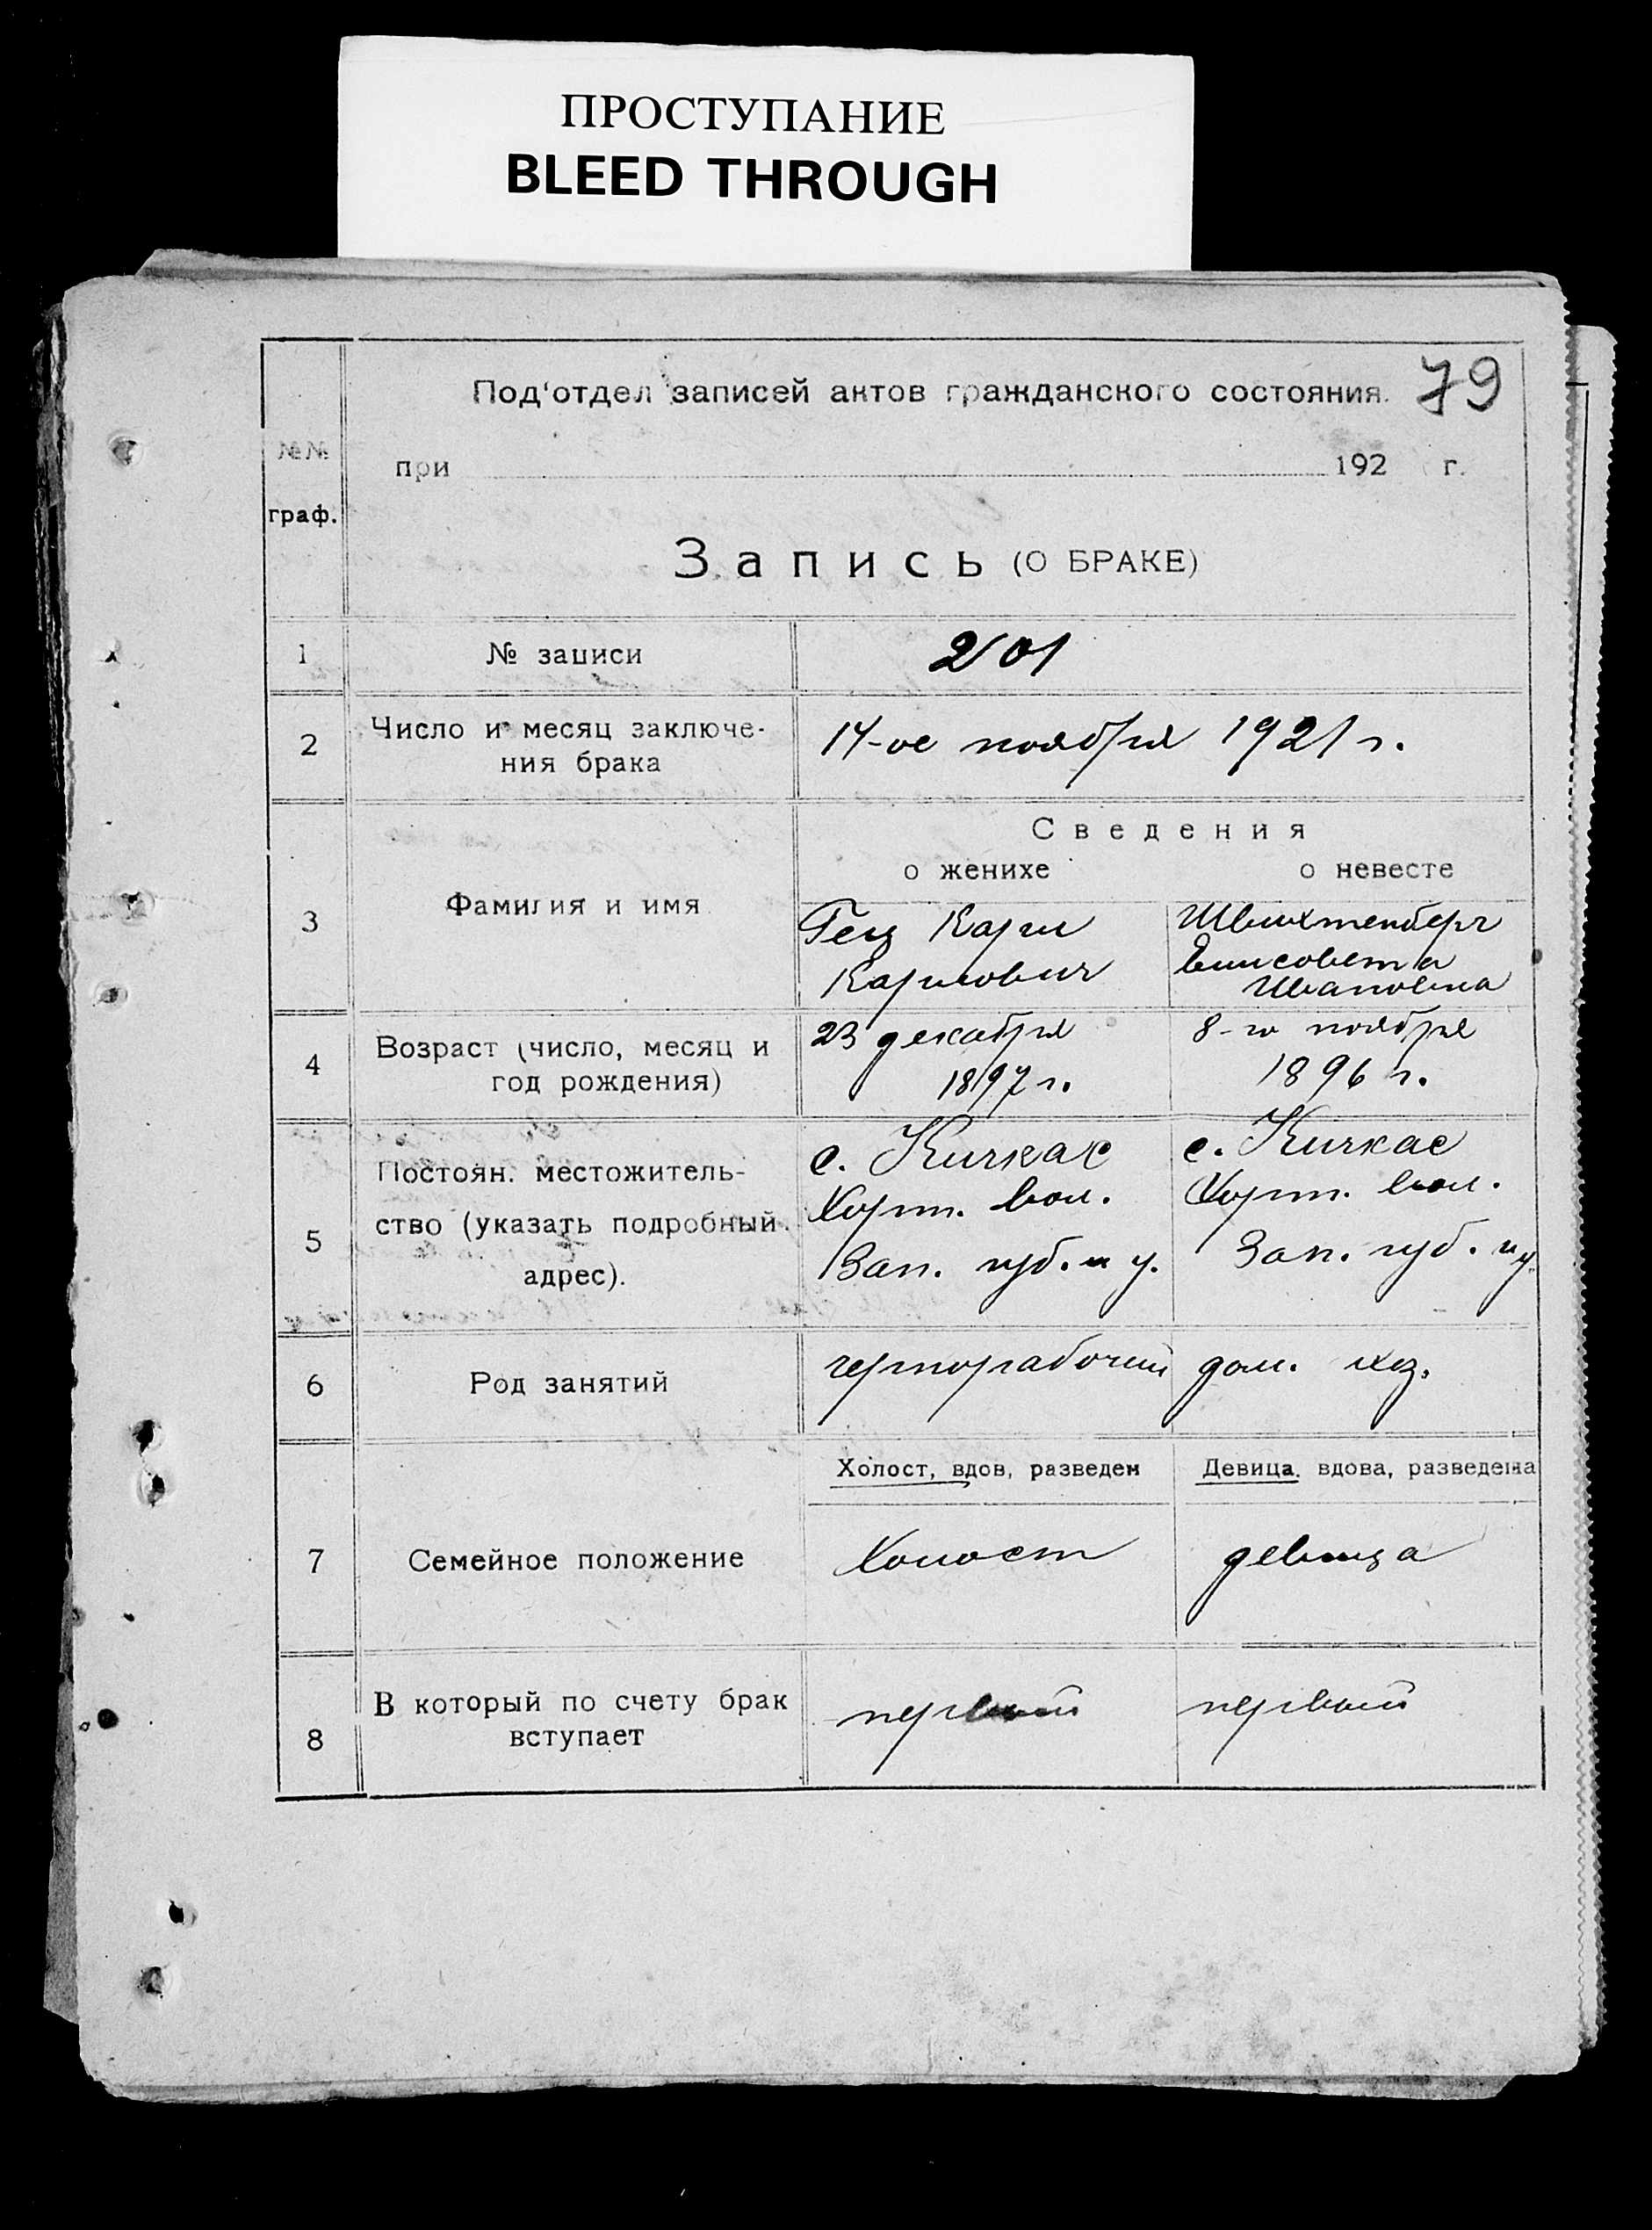 ПРОСТУПАНИЕ
BLEED THROUGH
Под'отдел записей актов гражданского состояния. 79
№№
граф.
при 192 г.
Запись (О БРАКЕ)
1 № записи 201
2 Число и месяц заключе-
ния брака
14-ое ноября 1921 г.
Сведения
о женихе о невесте
3 Фамилия и имя
Гец Карл
Карлович
Швихтенберг
Елисовета
Ивановна
4 Возраст (число, месяц и
год рождения)
23 декабря
1897 г.
8-го ноября
1896 г.
5 Постоян. местожитель-
ство (указать подробный
адрес).
с. Кичкас
Хорт. вол.
Зап. губ. и у.
с. Кичкас
Хорт. вол.
Зап. губ. и у.
6 Род занятий
чернорабочий
дом. хоз.
Холост, вдов, разведен
Девица, вдова, разведена
7 Семейное положение
Холост
девица
8 В который по счету брак
вступает
первый
первый